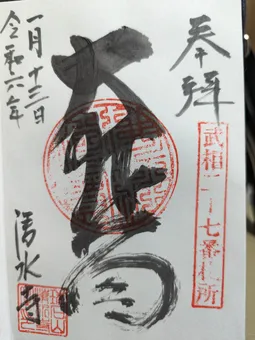 奉拝
武相二十七番札所
大悲閣
清水寺
令和六年
一月十三日